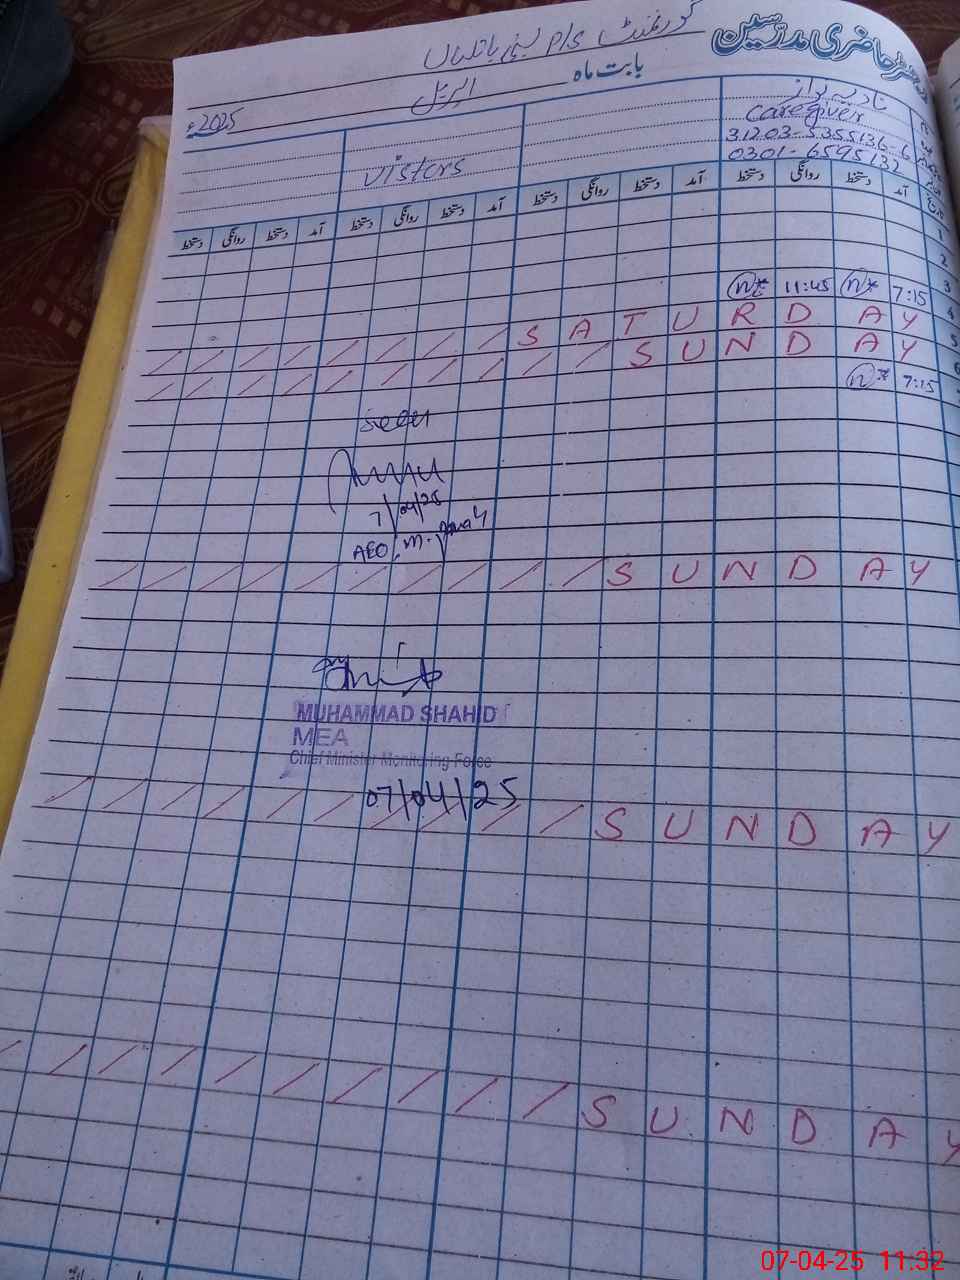 حاضری مدرسین
گورنمنٹ P/S بستی
بابت ماہ
اپریل
2025ء
نادیہ
Caregiver
31203-5355136-6
0301-6595132
Visters
آمد دستخط روانگی دستخط آمد دستخط روانگی دستخط آمد دستخط روانگی دستخط
1
2
3
4 7:15 11:45
5 SATURDAY
6 SUNDAY
7:15
Seen
7/04/25
AEO M.
SUNDAY
MUHAMMAD SHAHID
MEA
Chief Minister Monitoring Force
07/04/25
SUNDAY
SUNDAY
07-04-25 11:32